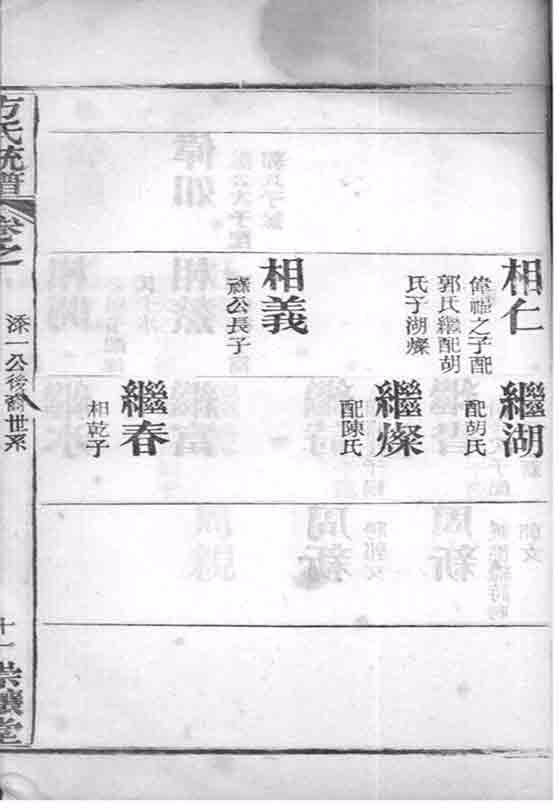 相仁
偉之子配
郭氏繼配胡
氏子湖燦
相義
公長子
繼湖
配胡氏
繼燦
配陳氏
繼春
相乾子
方氏統譜
卷之一
添一公後裔世系
十一
崇讓堂